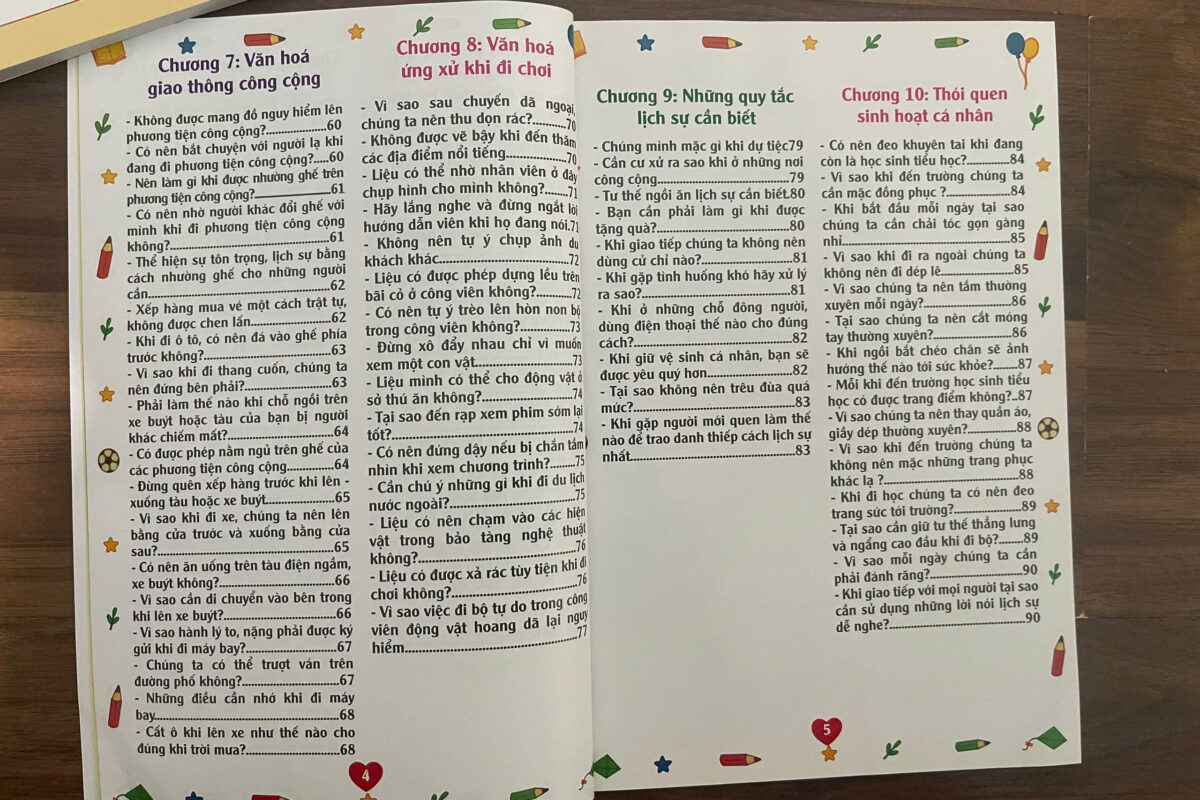 Chương 7: Văn hoá
giao thông công cộng
- Không được mang đồ nguy hiểm lên
phương tiện công cộng?...................60
- Có nên bắt chuyện với người lạ khi
đang đi phương tiện công cộng?.....60
- Nên làm gì khi được nhường ghế trên
phương tiện công cộng?...................61
- Có nên nhờ người khác đổi ghế với
mình khi đi phương tiện công cộng
không?...............................................61
- Thể hiện sự tôn trọng, lịch sự bằng
cách nhường ghế cho những người
cần......................................................62
- Xếp hàng mua vé một cách trật tự,
không được chen lấn........................62
- Khi đi ô tô, có nên đá vào ghế phía
trước không?.....................................63
- Vì sao khi đi thang cuốn, chúng ta
nên đứng bên phải?..........................63
- Phải làm thế nào khi chỗ ngồi trên
xe buýt hoặc tàu của bạn bị người
khác chiếm mất?...............................64
- Có được phép nằm ngủ trên ghế của
các phương tiện công cộng..............64
- Đừng quên xếp hàng trước khi lên -
xuống tàu hoặc xe buýt.....................65
- Vì sao khi đi xe, chúng ta nên lên
bằng cửa trước và xuống bằng cửa
sau?....................................................65
- Có nên ăn uống trên tàu điện ngầm,
xe buýt không?..................................66
- Vì sao cần di chuyển vào bên trong
khi lên xe buýt?.................................66
- Vì sao hành lý to, nặng phải được ký
gửi khi đi máy bay?...........................67
- Chúng ta có thể trượt ván trên
đường phố không?............................67
- Những điều cần nhớ khi đi máy
bay......................................................68
- Cất ô khi lên xe như thế nào cho
đúng khi trời mưa?............................68
4
Chương 8: Văn hoá
ứng xử khi đi chơi
- Vì sao sau chuyến dã ngoại,
chúng ta nên thu dọn rác?..............70
- Không được vẽ bậy khi đến thăm
các địa điểm nổi tiếng.....................70
- Liệu có thể nhờ nhân viên ở đây
chụp hình cho mình không?...........71
- Hãy lắng nghe và đừng ngắt lời
hướng dẫn viên khi họ đang nói.71
- Không nên tự ý chụp ảnh du
khách khác........................................72
- Liệu có được phép dựng lều trên
bãi cỏ ở công viên không?..............72
- Có nên tự ý trèo lên hòn non bộ
trong công viên không?..................73
- Đừng xô đẩy nhau chỉ vì muốn
xem một con vật..............................73
- Liệu mình có thể cho động vật ở
sở thú ăn không?.............................74
- Tại sao đến rạp xem phim sớm lại
tốt?....................................................74
- Có nên đứng dậy nếu bị chắn tầm
nhìn khi xem chương trình?...........75
- Cần chú ý những gì khi đi du lịch
nước ngoài?.....................................75
- Liệu có nên chạm vào các hiện
vật trong bảo tàng nghệ thuật
không?..............................................76
- Liệu có được xả rác tùy tiện khi đi
chơi không?.....................................76
- Vì sao việc đi bộ tự do trong công
viên động vật hoang dã lại nguy
hiểm..................................................77
Chương 9: Những quy tắc
lịch sự cần biết
- Chúng mình mặc gì khi dự tiệc79
- Cần cư xử ra sao khi ở những nơi
công cộng..........................................79
- Tư thế ngồi ăn lịch sự cần biết.80
- Bạn cần phải làm gì khi được
tặng quà?..........................................80
- Khi giao tiếp chúng ta không nên
dùng cử chỉ nào?..............................81
- Khi gặp tình huống khó hãy xử lý
ra sao?...............................................81
- Khi ở những chỗ đông người,
dùng điện thoại thế nào cho đúng
cách?..................................................82
- Khi giữ vệ sinh cá nhân, bạn sẽ
được yêu quý hơn............................82
- Tại sao không nên trêu đùa quá
mức?..................................................83
- Khi gặp người mới quen làm thế
nào để trao danh thiếp cách lịch sự
nhất....................................................83
Chương 10: Thói quen
sinh hoạt cá nhân
- Có nên đeo khuyên tai khi đang
còn là học sinh tiểu học?.................84
- Vì sao khi đến trường chúng ta
cần mặc đồng phục ?.......................84
- Khi bắt đầu mỗi ngày tại sao
chúng ta cần chải tóc gọn gàng
nhỉ......................................................85
- Vì sao khi đi ra ngoài chúng ta
không nên đi dép lê.........................85
- Vì sao chúng ta nên tắm thường
xuyên mỗi ngày?..............................86
- Tại sao chúng ta nên cắt móng
tay thường xuyên?...........................86
- Khi ngồi bắt chéo chân sẽ ảnh
hướng thế nào tới sức khỏe?.........87
- Mỗi khi đến trường học sinh tiểu
học có được trang điểm không?..87
- Vì sao chúng ta nên thay quần áo,
giầy dép thường xuyên?..................88
- Vì sao khi đến trường chúng ta
không nên mặc những trang phục
khác lạ ?............................................88
- Khi đi học chúng ta có nên đeo
trang sức tới trường?.......................89
- Tại sao cần giữ tư thế thẳng lưng
và ngẩng cao đầu khi đi bộ?...........89
- Vì sao mỗi ngày chúng ta cần
phải đánh răng?...............................90
- Khi giao tiếp với mọi người tại sao
cần sử dụng những lời nói lịch sự
dễ nghe?............................................90
5